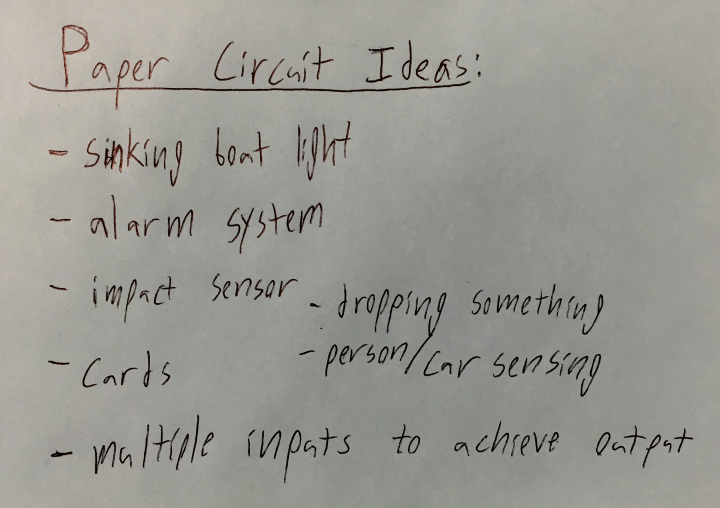 Paper Circuit Ideas:
- sinking boat light
- alarm system
- impact sensor
- dropping something
- person/car sensing
- Cards
- multiple inputs to achieve output